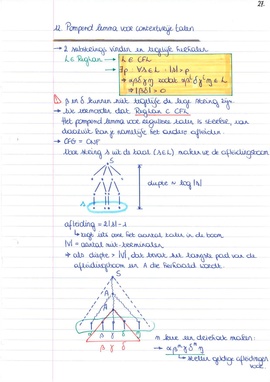 12. Pompend lemma voor contextvrije talen
→ 2 substrings vinden en tegelijk herhalen
L ∈ RegLan → L ∈ CFL
∃p ∀s ∈ L : |s| > p
→ αβγδη zodat αβⁱγδⁱη ∈ L
→ |βδ| > 0
β en δ kunnen niet tegelijk de lege string zijn.
→ We vermoeden dat RegLan ⊂ CFL
Het pompend lemma voor reguliere talen is sterker, van
daaruit kan je namelijk het andere afleiden.
→ CFG = CNF
Voor string s uit de taal (s ∈ L) maken we de afleidingsboom
S
diepte ~ log|s|
s
afleiding = 2|s| - 1
→ telt ook het aantal zaken in de boom
|V| = aantal niet-terminalen
→ als diepte > |V|, dan bevat het langste pad van de
afleidingsboom een A die herhaald wordt.
S
A
A
α β γ δ η
n keer een driehoek maken:
→ αβⁿγδⁿη
→ stellen geldige afleidingen
voor